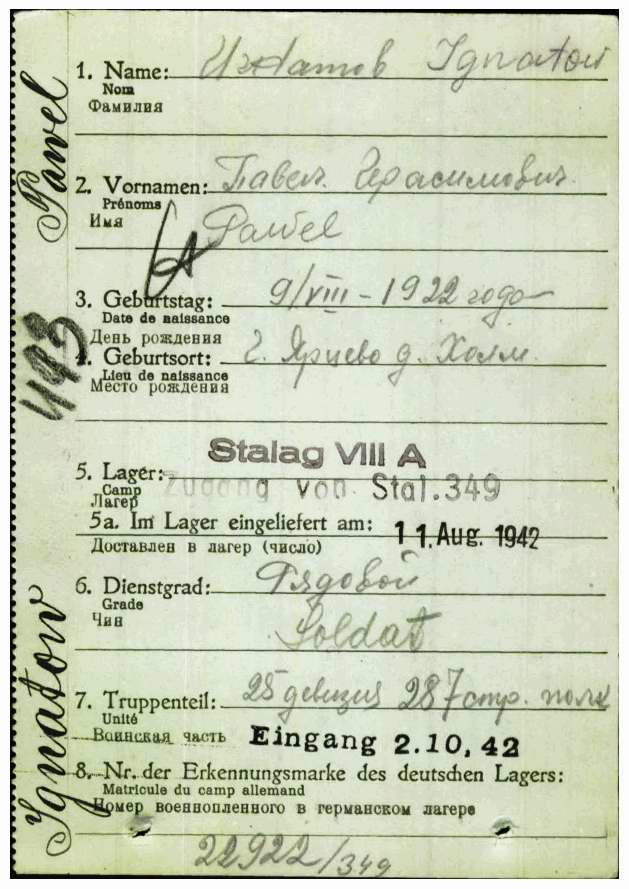 Pawel
Ignatow
493
1. Name: Игнатов Ignatow
Nom
Фамилия
2. Vornamen: Павел Герасимович
Prénoms
Имя
Pawel
3. Geburtstag: 9/VIII – 1922 года
Date de naissance
День рождения
4. Geburtsort: г. Ярцево д. Холм
Lieu de naissance
Место рождения
Stalag VIII A
5. Lager: Zugang von Stal. 349
Camp
Лагер
5a. Im Lager eingeliefert am: 11. Aug. 1942
Доставлен в лагер (число)
6. Dienstgrad: Рядовой
Grade
Чин
Soldat
7. Truppenteil: 25 девизия 287 стр. полк
Unité
Воинская часть Eingang 2.10.42
8. Nr. der Erkennungsmarke des deutschen Lagers:
Matricule du camp allemand
Номер военнопленного в германском лагере
22922/349